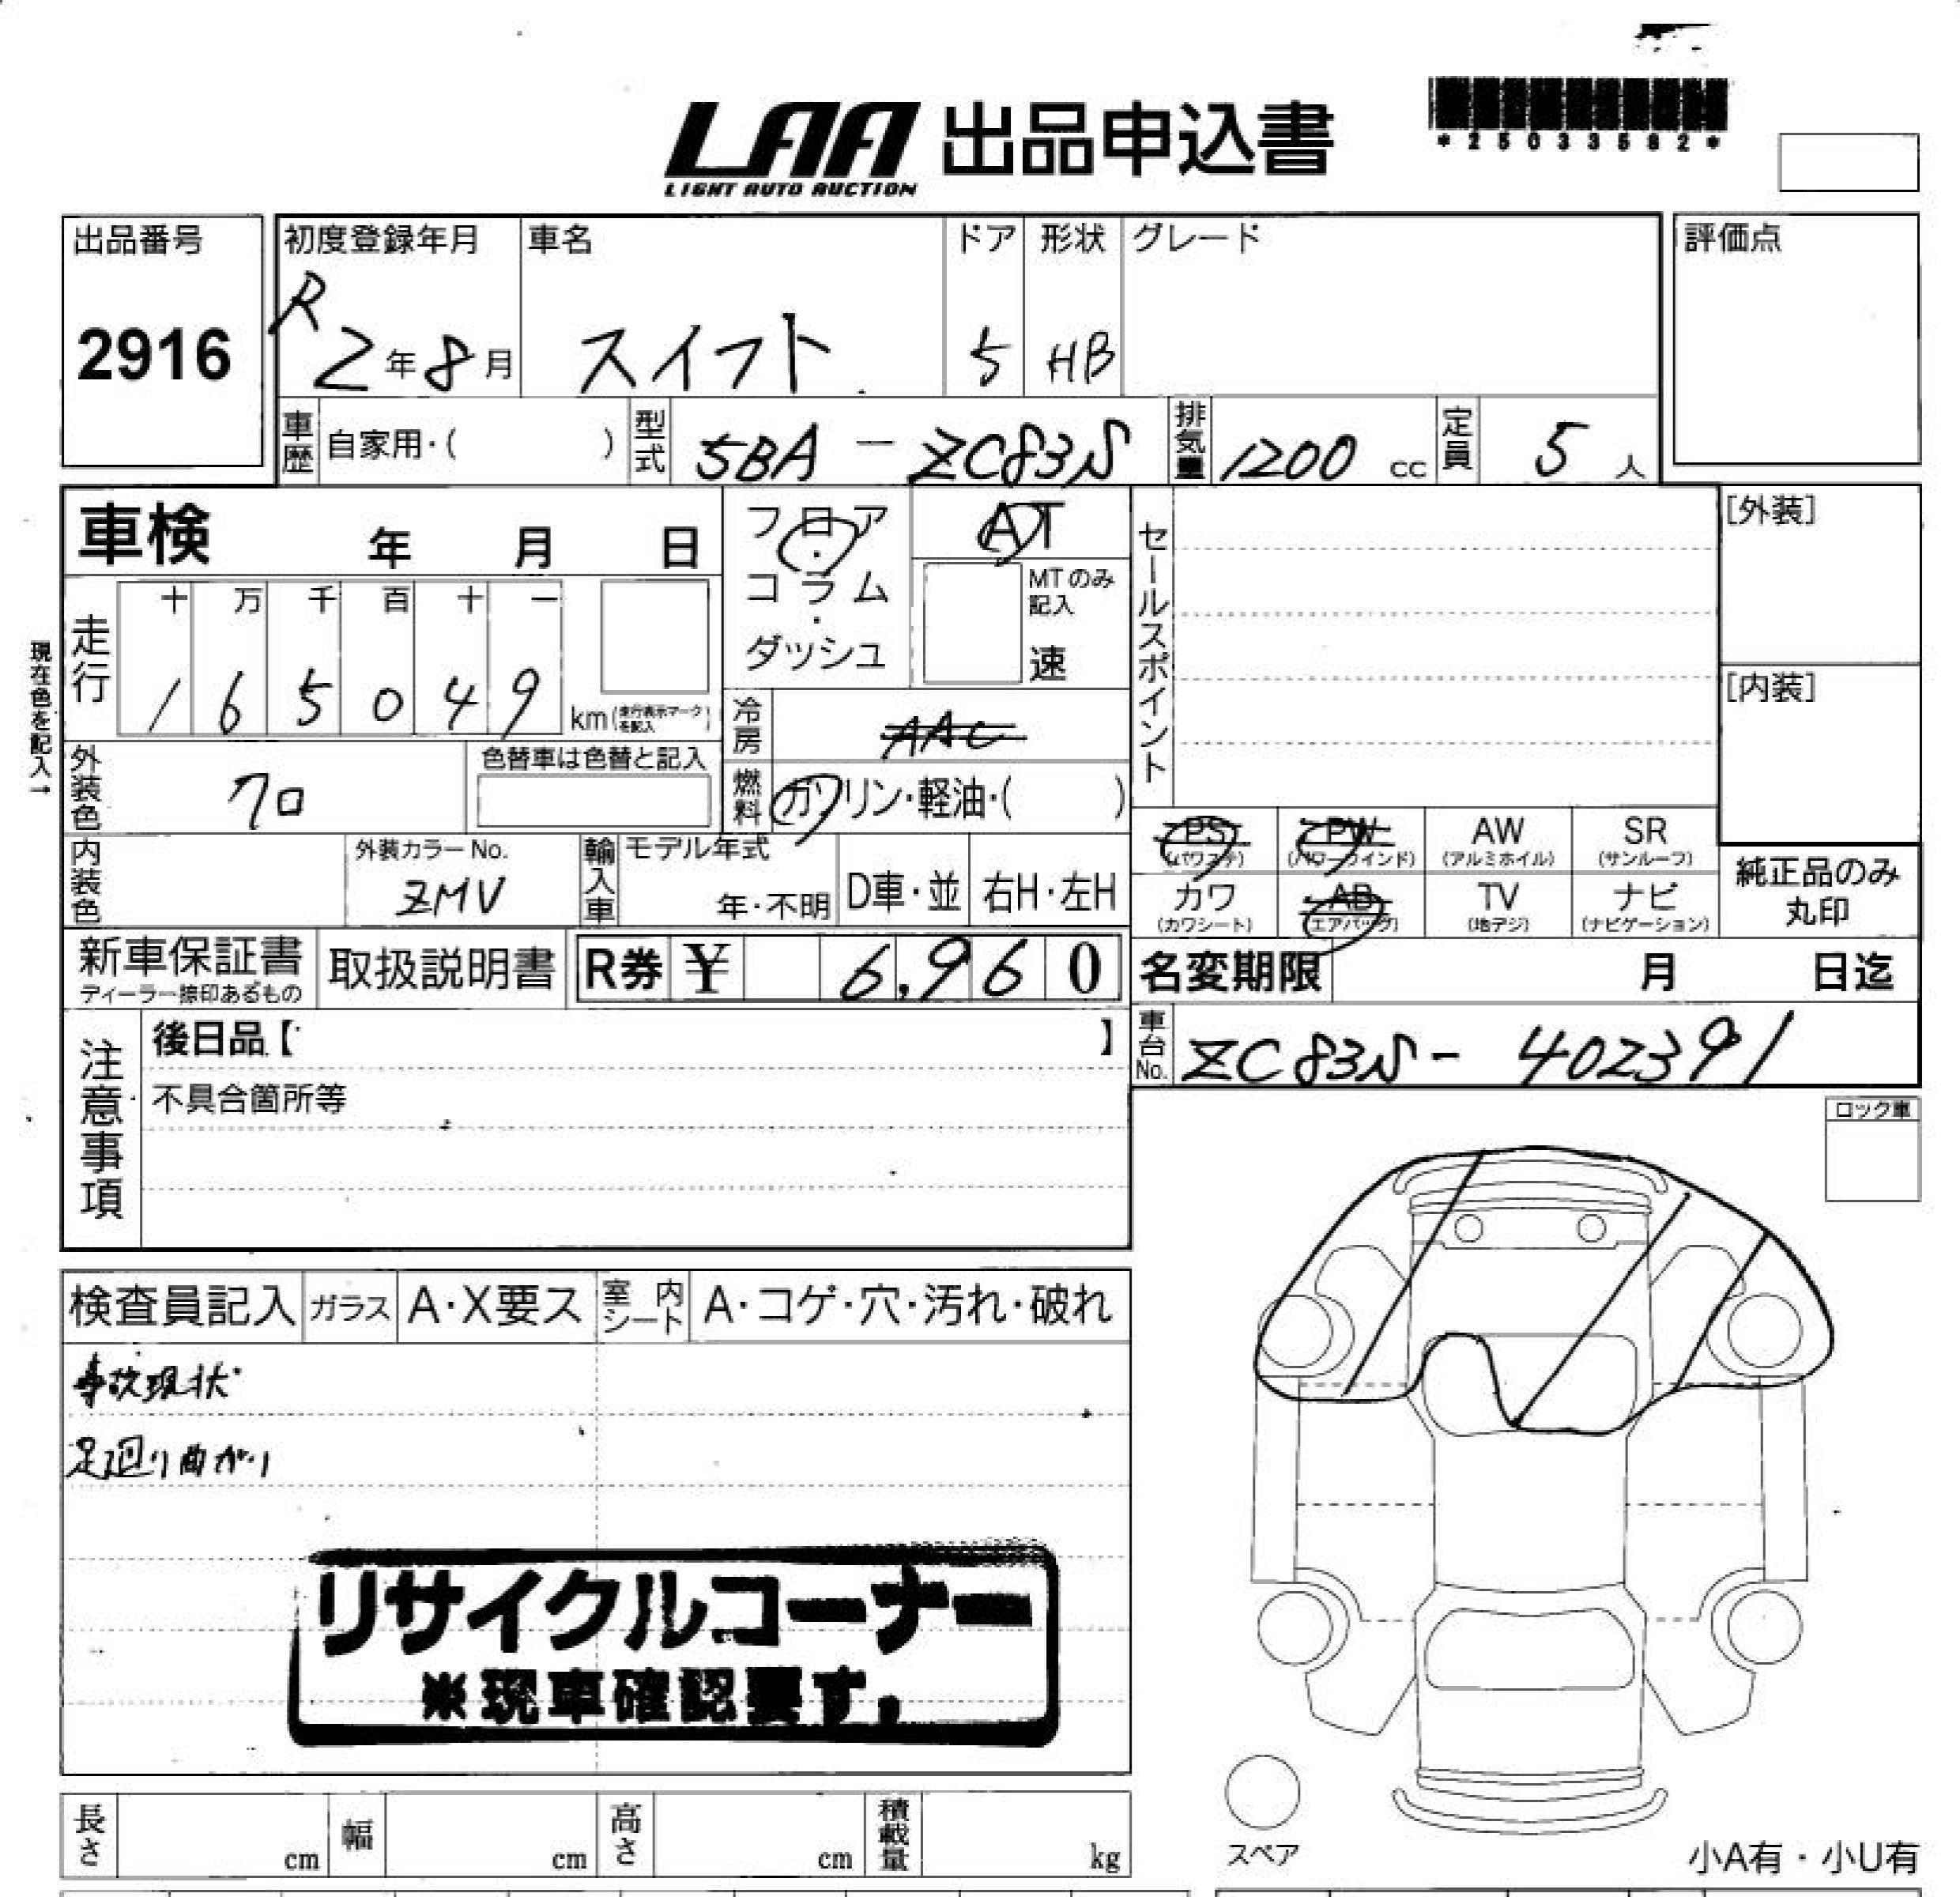 LAA 出品申込書
LIGHT AUTO AUCTION
*25033582*
出品番号
2916
初度登録年月
R 2年8月
車名
スイフト
ドア
5
形状
HB
グレード
評価点
車歴
自家用・( )
型式
5BA - ZC83S
排気量
1200 cc
定員
5 人
車検 年 月 日
フロア
・
コラム
・
ダッシュ
AT
MTのみ
記入
速
セールスポイント
[外装]
[内装]
現在色を記入→
走行
十 万 千 百 十 一
1 6 5 0 4 9
km(走行表示マークを記入)
冷房
AAC
燃料
ガソリン・軽油・( )
外装色
クロ
色替車は色替と記入
内装色
外装カラーNo.
ZMV
輸入車
モデル年式
年・不明
D車・並
右H・左H
PS
(パワステ)
PW
(パワーウインド)
AW
(アルミホイル)
SR
(サンルーフ)
カワ
(カワシート)
AB
(エアバッグ)
TV
(地デジ)
ナビ
(ナビゲーション)
純正品のみ
丸印
新車保証書
ディーラー捺印あるもの
取扱説明書
R券 ¥ 6,960
名変期限 月 日迄
注意事項
後日品【 】
不具合箇所等
車台No.
ZC83S- 402391
ロック車
検査員記入
ガラス
A・X要ス
室内シート
A・コゲ・穴・汚れ・破れ
事故現状
足廻り曲がり
リサイクルコーナー
※現車確認要す。
長さ cm
幅 cm
高さ cm
積載量 kg
スペア
小A有・小U有